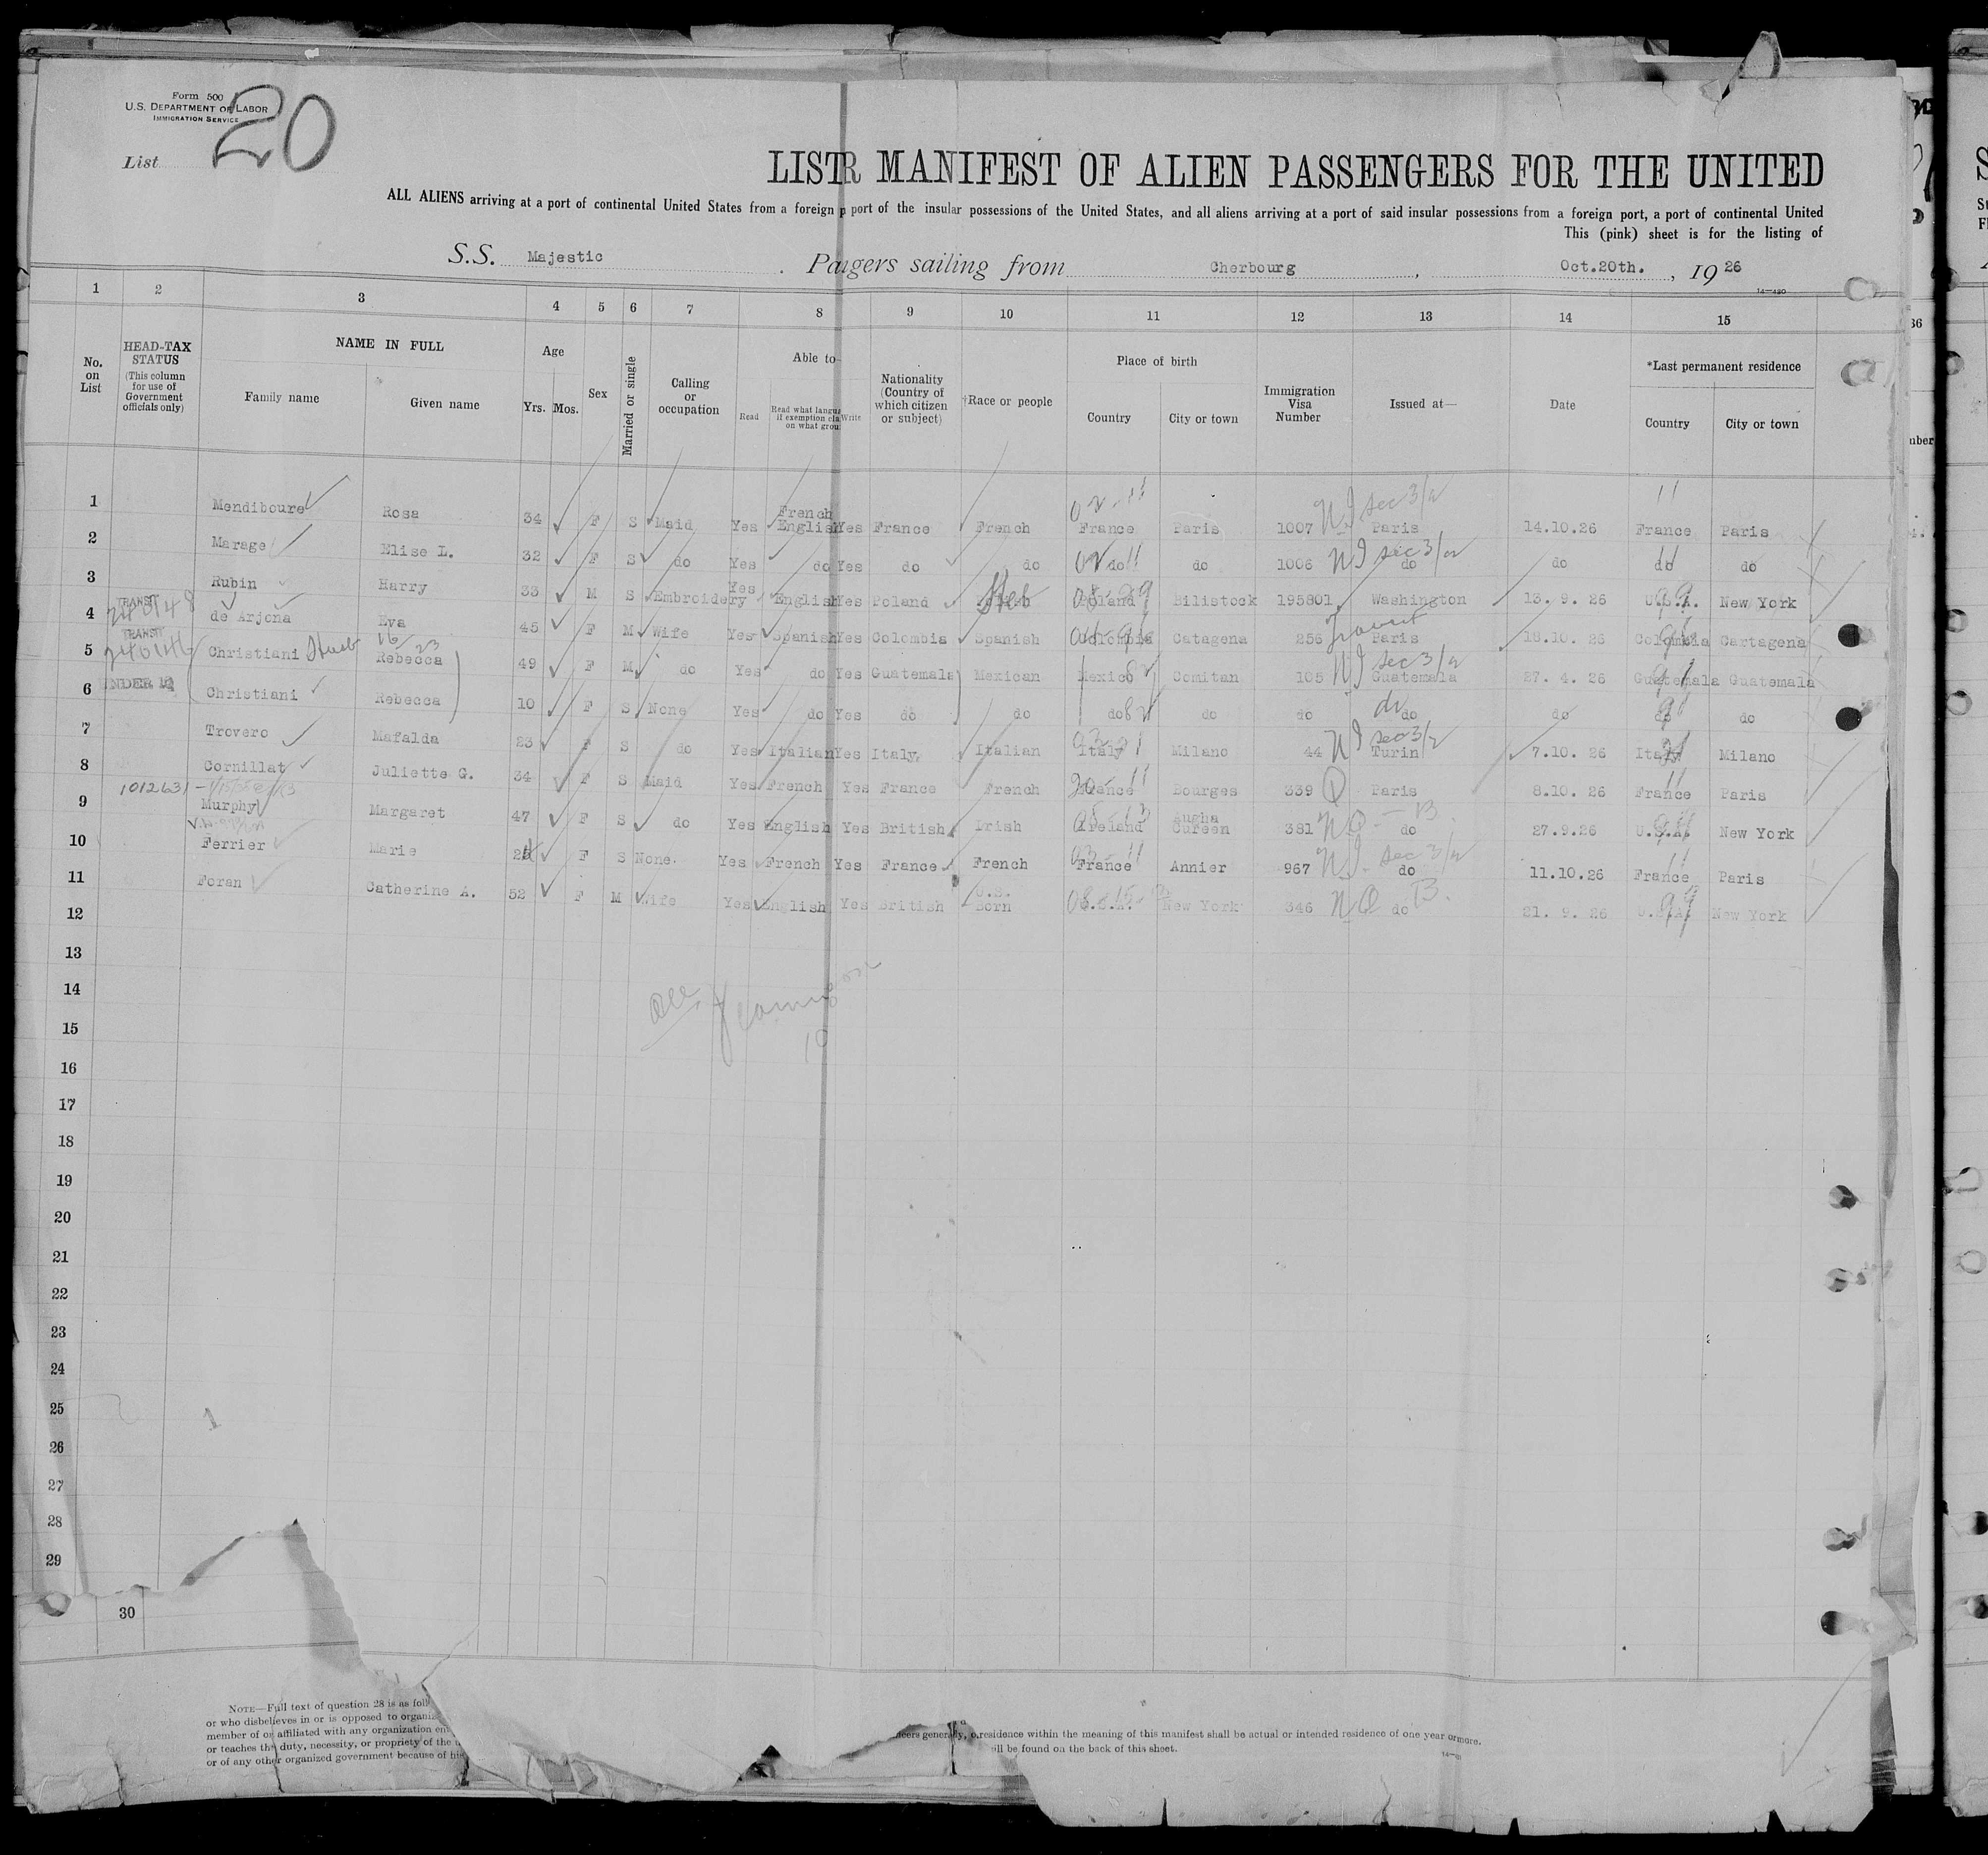 Form 500
U.S. DEPARTMENT OF LABOR
IMMIGRATION SERVICE
List 20
LIST R MANIFEST OF ALIEN PASSENGERS FOR THE UNITED
ALL ALIENS arriving at a port of continental United States from a foreign p port of the insular possessions of the United States, and all aliens arriving at a port of said insular possessions from a foreign port, a port of continental United
This (pink) sheet is for the listing of
S.S. Majestic gers sailing from Cherbourg, Oct.20th., 1926
14—480
1 2 3 4 5 6 7 8 9 10 11 12 13 14 15
No. on List
HEAD-TAX STATUS (This column for use of Government officials only)
NAME IN FULL
Family name Given name
Age
Yrs. Mos.
Sex
Married or single
Calling or occupation
Able to—
Read Read what langu if exemption cla on what grou Write
Nationality (Country of which citizen or subject)
†Race or people
Place of birth
Country City or town
Immigration Visa Number
Issued at—
Date
*Last permanent residence
Country City or town
1 Mendiboure Rosa 34 F S Maid Yes French English Yes France French France Paris 1007 NI sec 3/2 Paris 14.10.26 France Paris
2 Marage Elise L. 32 F S do Yes do Yes do do do do 1006 NI sec 3/2 do do do do
3 Rubin Harry 33 M S Embroidery Yes English Yes Poland Heb Poland Bilistock 195801 Washington 13. 9. 26 U.S.A. New York
TRANSIT
4 de Arjona Eva 45 F M Wife Yes Spanish Yes Colombia Spanish Colombia Catagena 256 Transit Paris 18.10. 26 Colombia Cartagena
TRANSIT
5 Christiani Rebecca 49 F M do Yes do Yes Guatemala Mexican Mexico Comitan 105 NI sec 3/2 Guatemala 27. 4. 26 Guatemala Guatemala
6 Christiani Rebecca 10 F S None Yes do Yes do do do do do do do do do do
7 Trovero Mafalda 23 F S do Yes Italian Yes Italy Italian Italy Milano 44 NI sec 3/2 Turin 7.10. 26 Italy Milano
8 Cornillat Juliette G. 34 F S Maid Yes French Yes France French France Bourges 339 Q Paris 8.10. 26 France Paris
1012631
9 Murphy Margaret 47 F S do Yes English Yes British Irish Ireland Augha Cureen 381 NQ - B do 27.9.26 U.S.A. New York
10 Ferrier Marie F S None. Yes French Yes France French France Annier 967 NI. sec 3/2 do 11.10.26 France Paris
11 Foran Catherine A. 52 F M Wife Yes English Yes British U.S. Born U.S.A. New York 346 NQ B. do 21. 9. 26 U.S.A. New York
12
13
14
15
10
16
17
18
19
20
21
22
23
24
25
1
26
27
28
29
30
NOTE—Full text of question 28 is as foll
or who disbelieves in or is opposed to organiz
member of or affiliated with any organization en
or teaches the duty, necessity, or propriety of the
or of any other organized government because of his
generally, residence within the meaning of this manifest shall be actual or intended residence of one year or more.
ill be found on the back of this sheet.